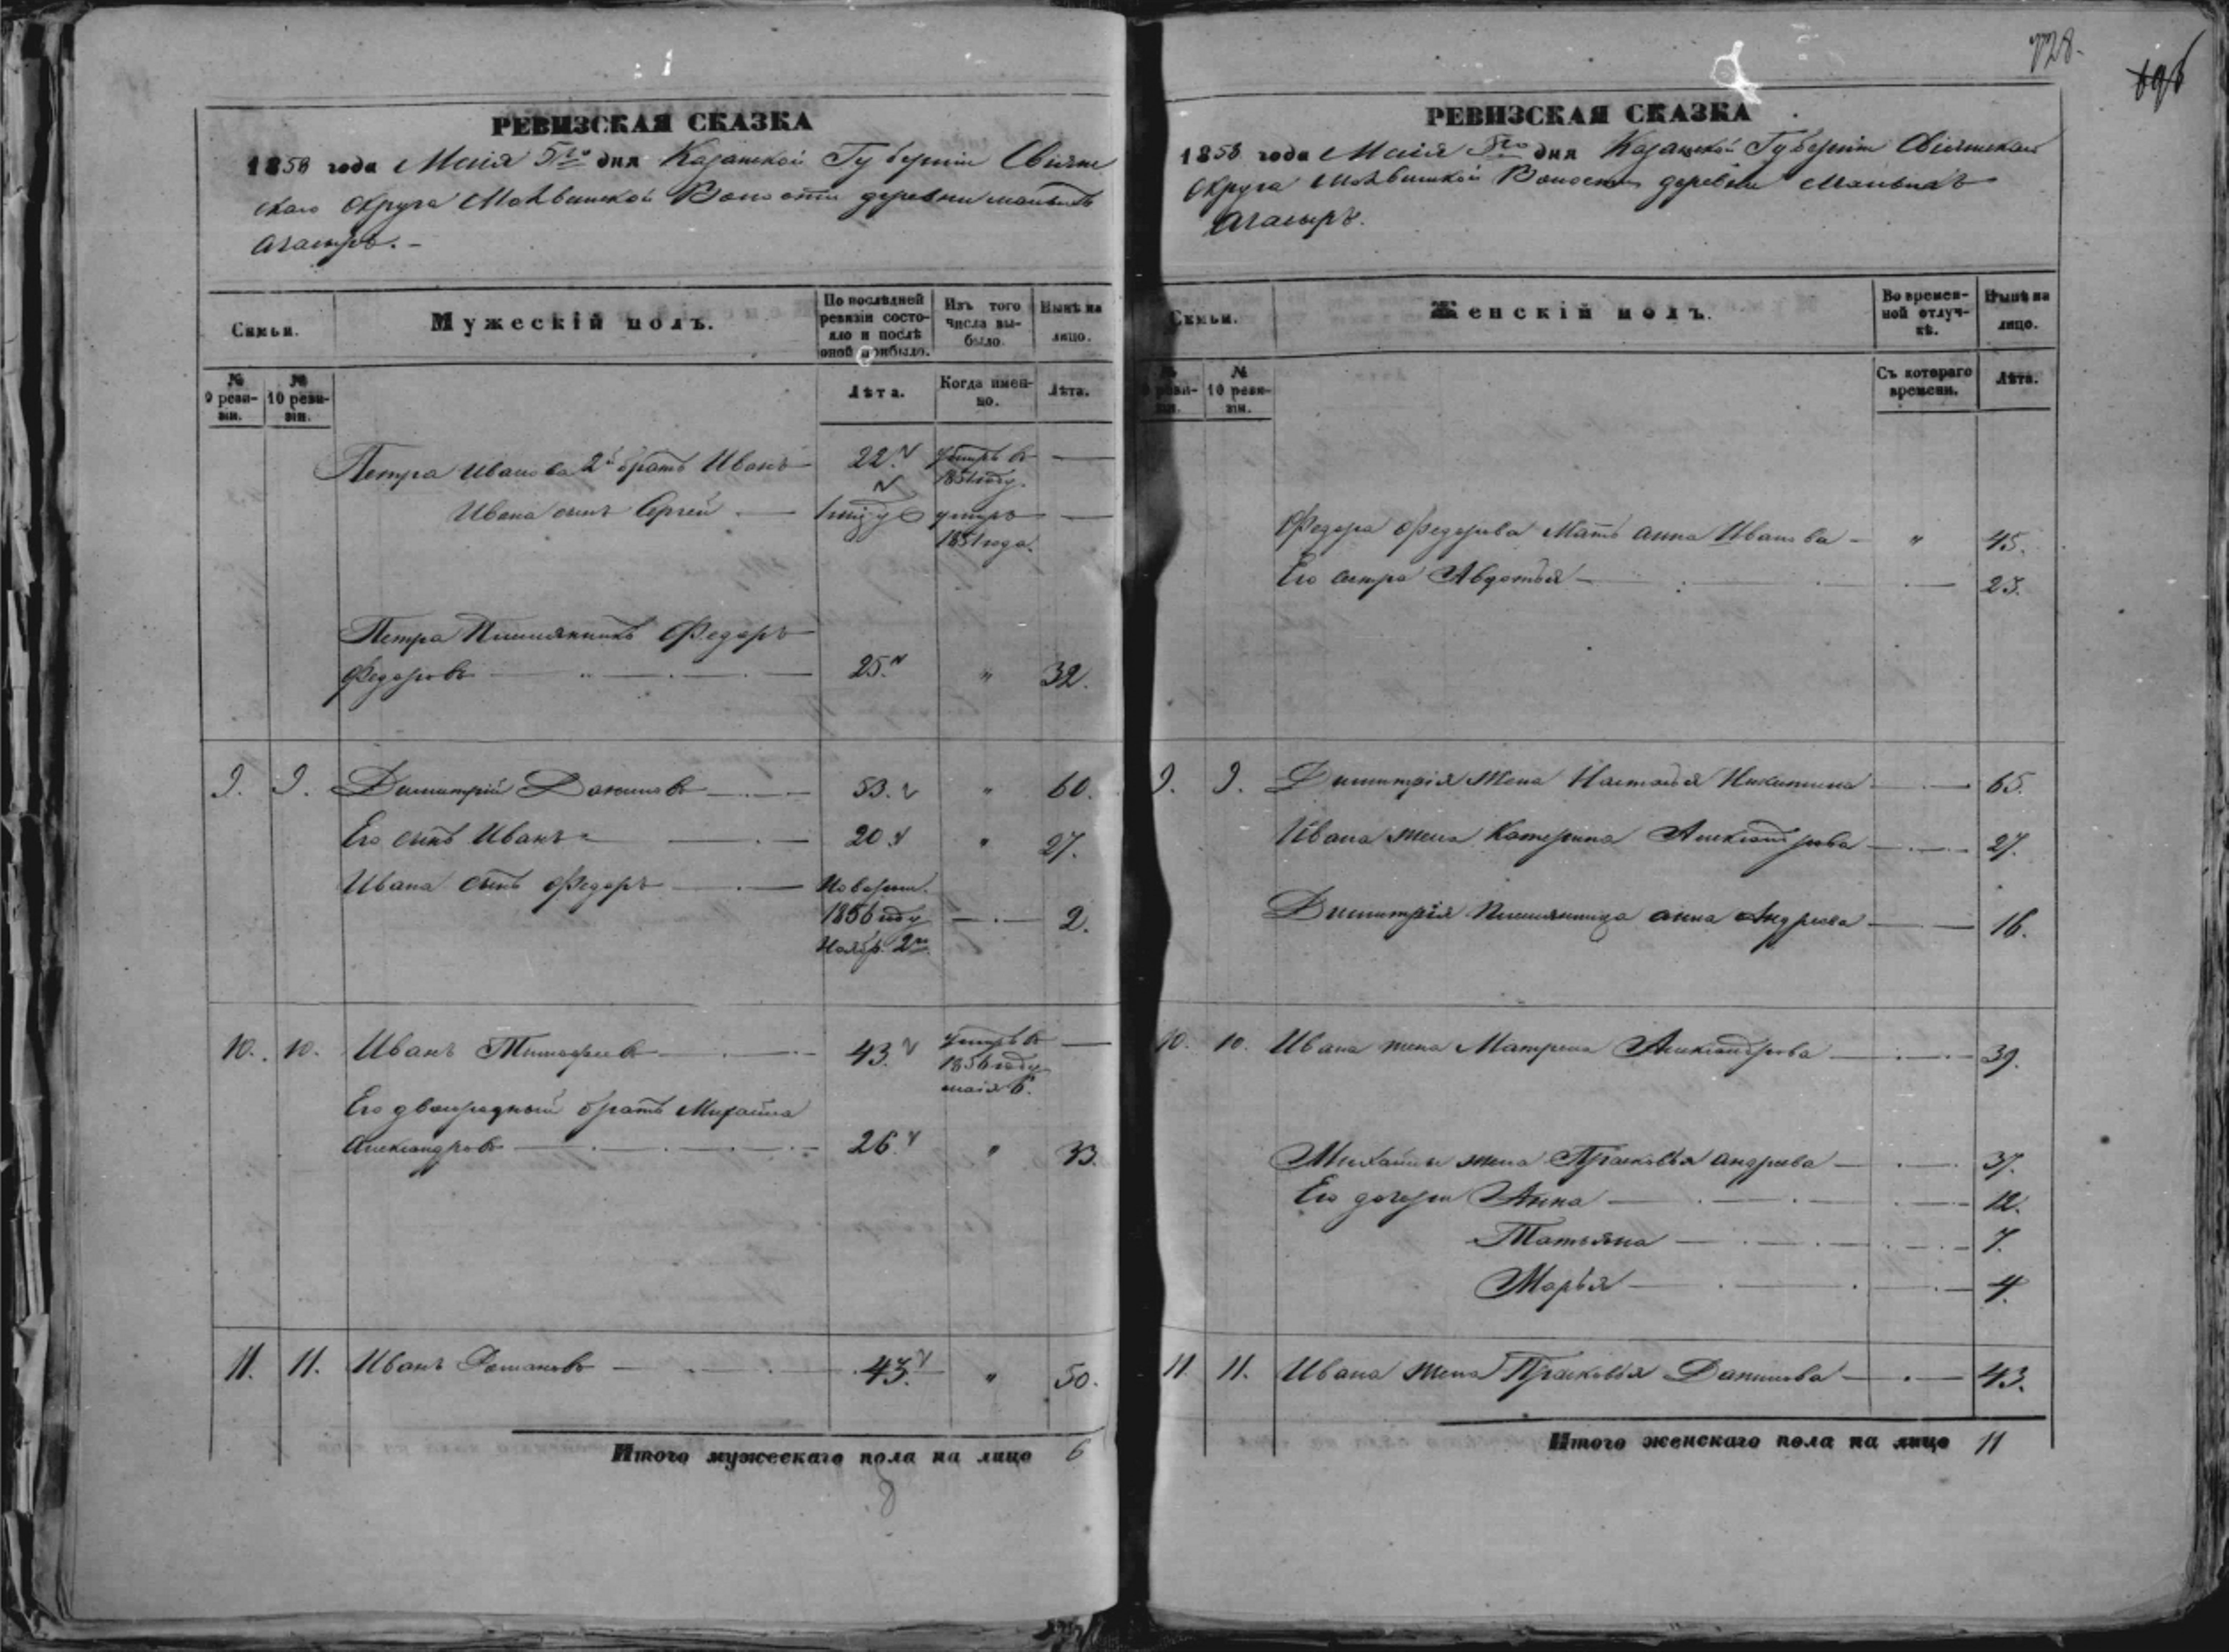 РЕВИЗСКАЯ СКАЗКА
1858 года Маія 5го дня Казанской Губерніи Свіяж
скаго Округа Волости деревни
По последней ревизіи состояло и после оной прибыло.
Изъ того числа выбыло.
Ныне на лицо.
Семьи.
Мужескій полъ.
№ 9 реви-
зіи.
№ 10 реви-
зіи.
Лѣта.
Когда имен-
но.
Лѣта.
Петра Иванова 2й братъ Иванъ 22. умеръ въ —
1851 году.
Ивана сынъ Сергей — умеръ —
1851 года.
Петра Племянникъ Федоръ
Федоровъ 25. " 32.
9. 9. Димитрій Даниловъ — 53. " 60.
Его сынъ Иванъ — 20. " 27.
Ивана сынъ Федоръ — Новорож.
1856 году — 2.
Ноябр. 2го
10. 10. Иванъ Тимофеевъ — 43. умеръ въ —
1856 году
маія 6.
Его двоюродный братъ Михайла
Александровъ — 26. " 33.
11. 11. Иванъ Романовъ — 43. " 50.
Итого мужескаго пола на лицо 6
728.
РЕВИЗСКАЯ СКАЗКА
1858 года Маія 5го дня Казанской Губерніи Свіяжскаго
Округа Волости деревни
Семьи.
Женскій полъ.
Во времен-
ной отлуч-
кѣ.
Нынѣ на
лицо.
№
9 реви-
зіи.
№
10 реви-
зіи.
Съ котораго
времени.
Лѣта.
Федора Федорова Мать Анна Иванова — " 45.
Его сестра Авдотья — 23.
9. 9. Димитрія Жена Настасья Никитина — 65.
Ивана жена Катерина Александрова — 27.
Димитрія племянница Анна Андреева — 16.
10. 10. Ивана жена Матрена Александрова — 39.
Михайлы жена Прасковья Андреева — 37.
Его дочери Анна — 12.
Татьяна — 7.
Марья — 4.
11 11. Ивана жена Прасковья Данилова — 43.
Итого женскаго пола на лицо 11